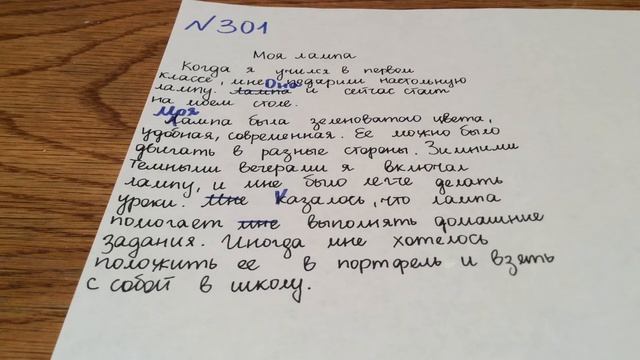 N301
Моя лампа
Когда я учился в первом
классе, мне подарили настольную
лампу. ~~Лампа~~ Она и сейчас стоит
на моем столе.
Моя лампа была зеленоватого цвета,
удобная, современная. Ее можно было
двигать в разные стороны. Зимними
темными вечерами я включал
лампу, и мне было легче делать
уроки. ~~Мне~~ Казалось, что лампа
помогает ~~мне~~ выполнять домашние
задания. Иногда мне хотелось
положить ее в портфель и взять
с собой в школу.